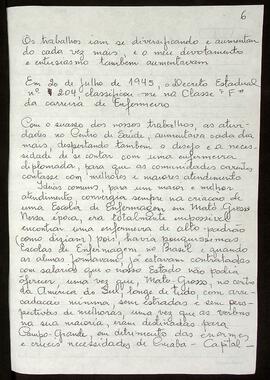 6
Os trabalhos iam se diversificando e aumentan
do cada vez mais, e o meu devotamento
e entusiasmo também aumentavam
Em 20 de julho de 1945, o Decreto Estadual
nº 204, classificou-me na Classe "F"
da carreira de Enfermeiro
Com o sucesso dos nossos trabalhos, as ativi-
dades no Centro de Saúde, aumentava cada dia
mais, despertando também o desejo e a neces-
sidade de se contar com uma enfermeira
diplomada, para que as comunidades carentes,
contasse com melhores e maiores atendimento
Idéias comuns, para um maior e melhor
atendimento convergia sempre na criação de
uma Escola de Enfermagem, em Mato Grosso
Nossa época, era totalmente impossível
encontrar uma enfermeira de alto padrão
(como diziam) pois, havia pouquíssimas
Escolas de Enfermagem no Brasil e, quando
as alunas formavam, já estavam contratadas
com salários que o nosso Estado não podia
oferecer, uma vez que, Mato-Grosso, no centro
da América do Sul, longe de tudo, com arre-
cadação mínima, sem estradas e sem pers-
pectivas de melhoras, uma vez que as verbas
na sua maioria, eram destinadas para
Campo-Grande, em detrimento das enormes
e cruéis necessidades de Cuiabá - Capital -